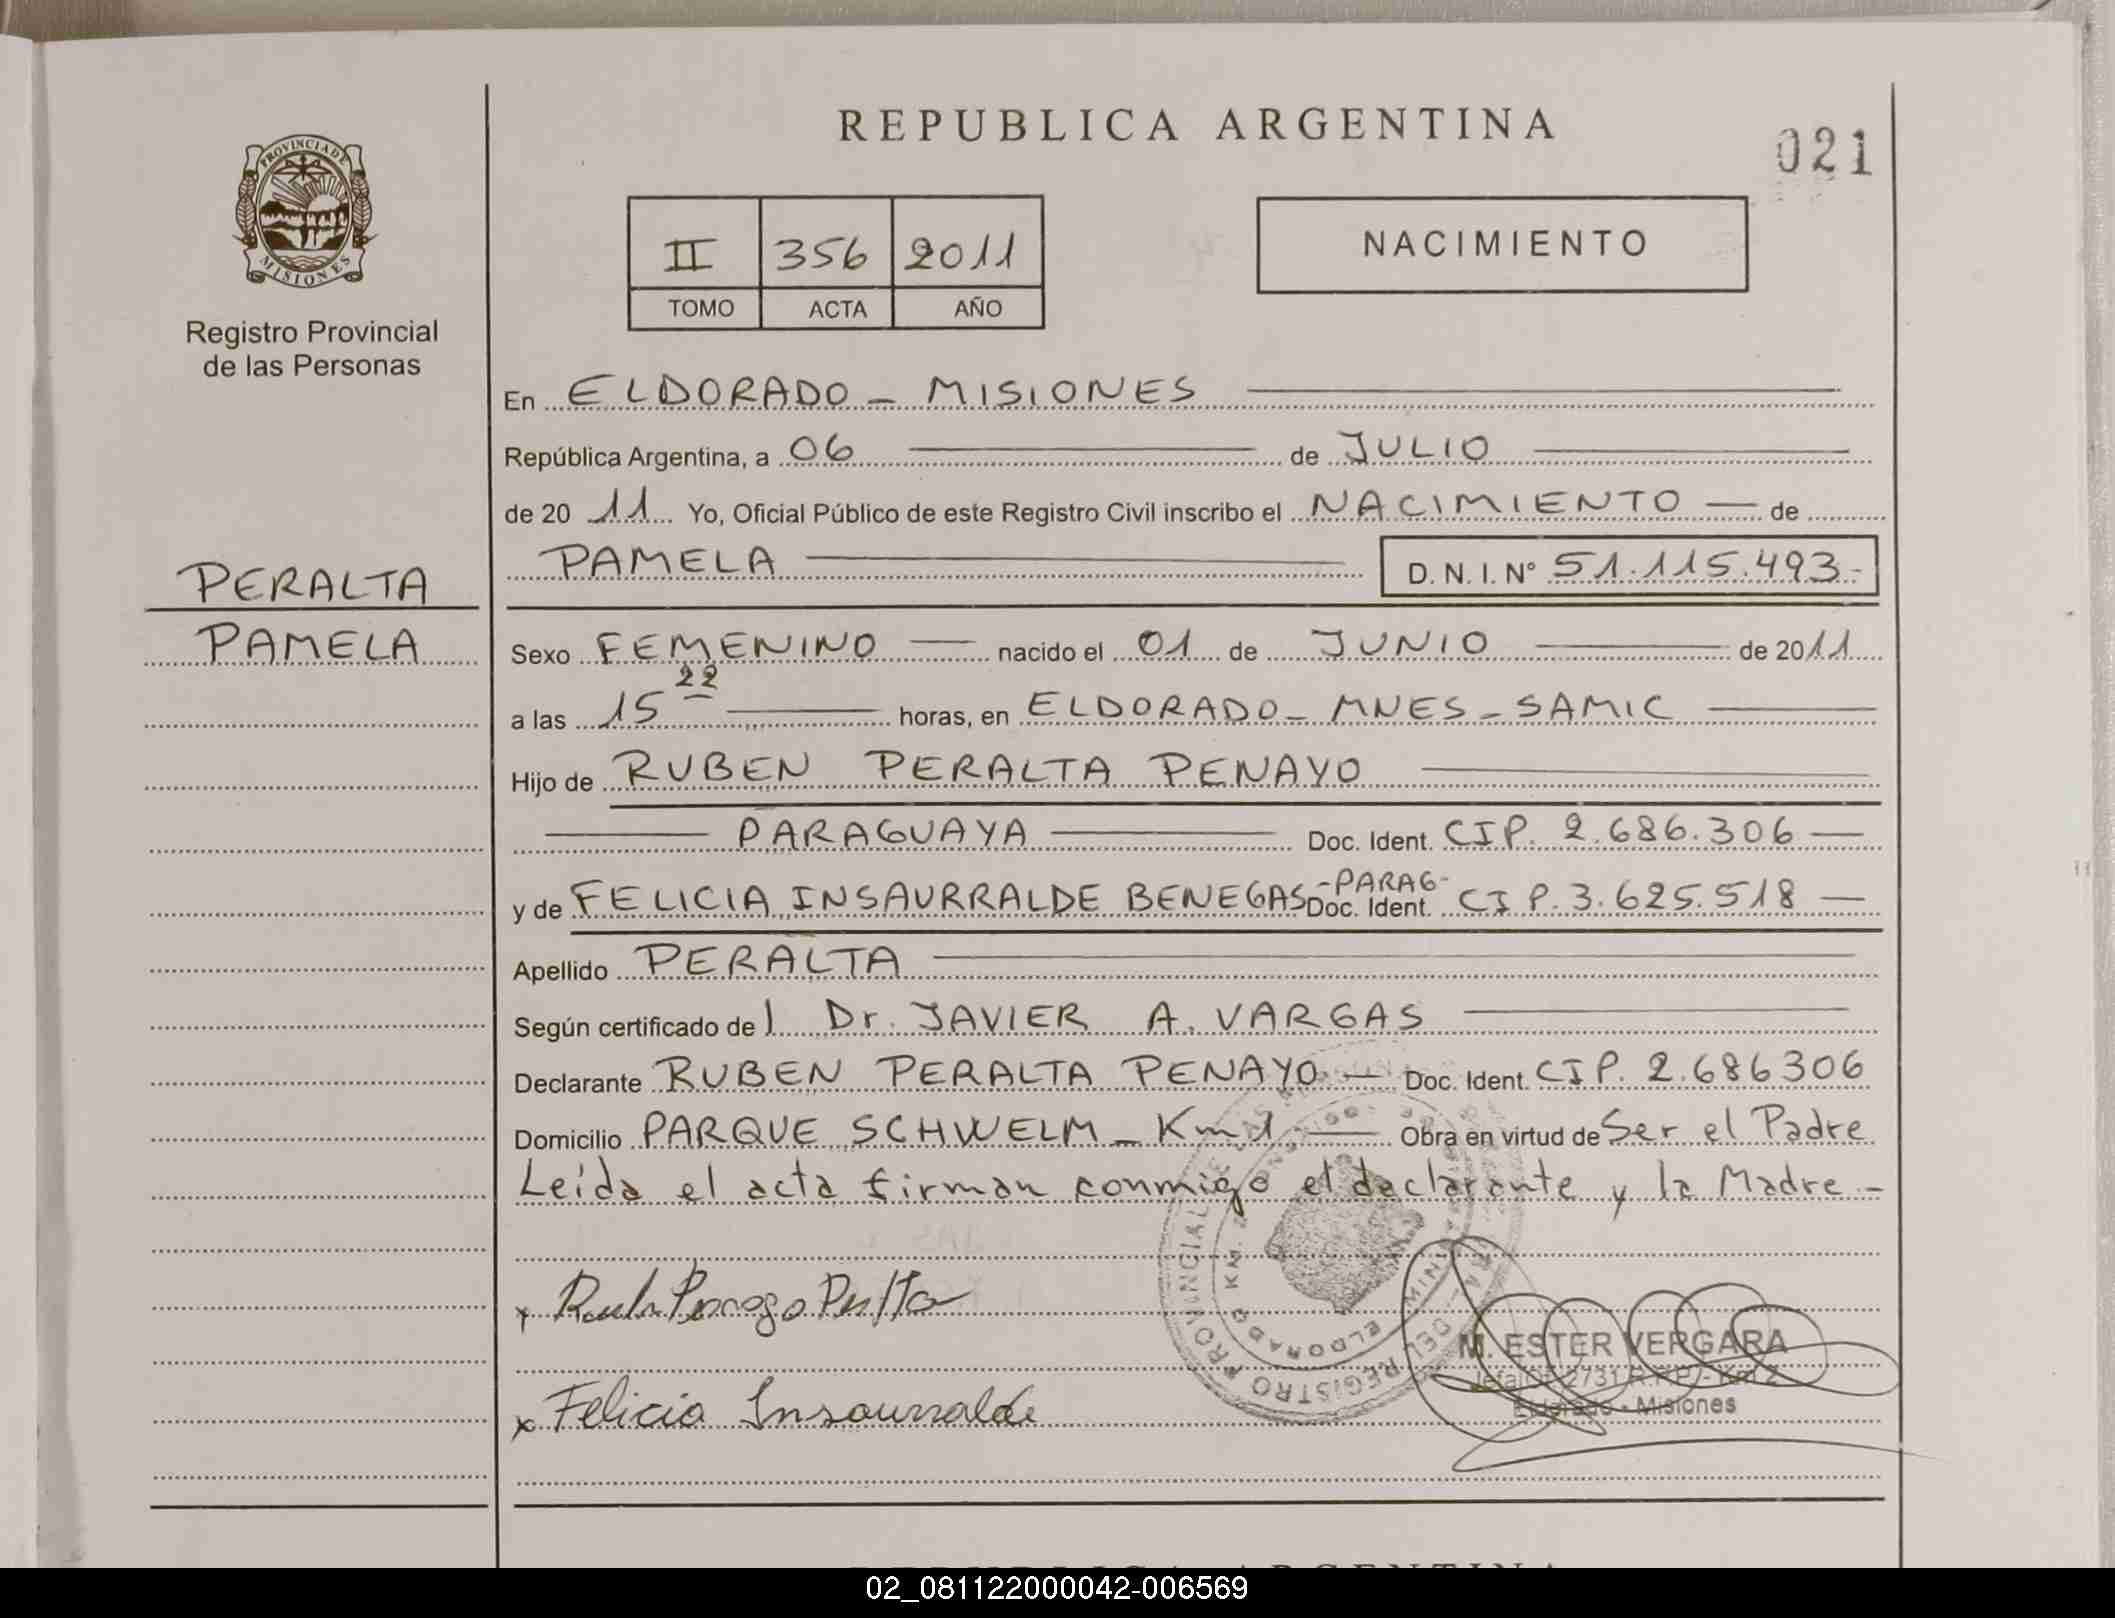 REPUBLICA ARGENTINA
021
PROVINCIA DE
MISIONES
Registro Provincial
de las Personas
II 356 2011
TOMO ACTA AÑO
NACIMIENTO
En ELDORADO - MISIONES
República Argentina, a 06 de JULIO
de 20 11 Yo, Oficial Público de este Registro Civil inscribo el NACIMIENTO de
PAMELA D. N. I. N° 51.115.493-
PERALTA
PAMELA
Sexo FEMENINO nacido el 01 de JUNIO de 2011
a las 15 22 horas, en ELDORADO - MNES - SAMIC
Hijo de RUBEN PERALTA PENAYO
PARAGUAYA Doc. Ident. CIP. 2.686.306
y de FELICIA INSAURRALDE BENEGAS -PARAG- Doc. Ident. CIP. 3.625.518
Apellido PERALTA
Según certificado del Dr. JAVIER A. VARGAS
Declarante RUBEN PERALTA PENAYO Doc. Ident. CIP. 2.686306
Domicilio PARQUE SCHWELM - Km 1 Obra en virtud de Ser el Padre
Leída el acta firman conmigo el declarante y la Madre -
x
REGISTRO PROVINCIAL DE LAS
ELDORADO KM. 2
M. ESTER VERGARA
Jefa Of. 2731 R.P.P. - Km 2
Eldorado - Misiones
x Felicia Insaurralde
02_081122000042-006569